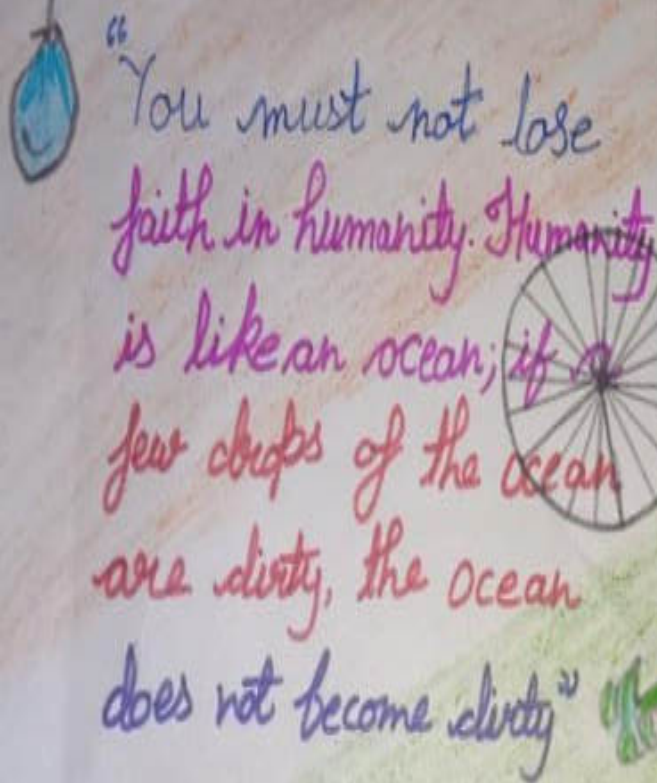 "You must not lose
faith in humanity. Humanity
is like an ocean; if a
few drops of the ocean
are dirty, the ocean
does not become dirty"